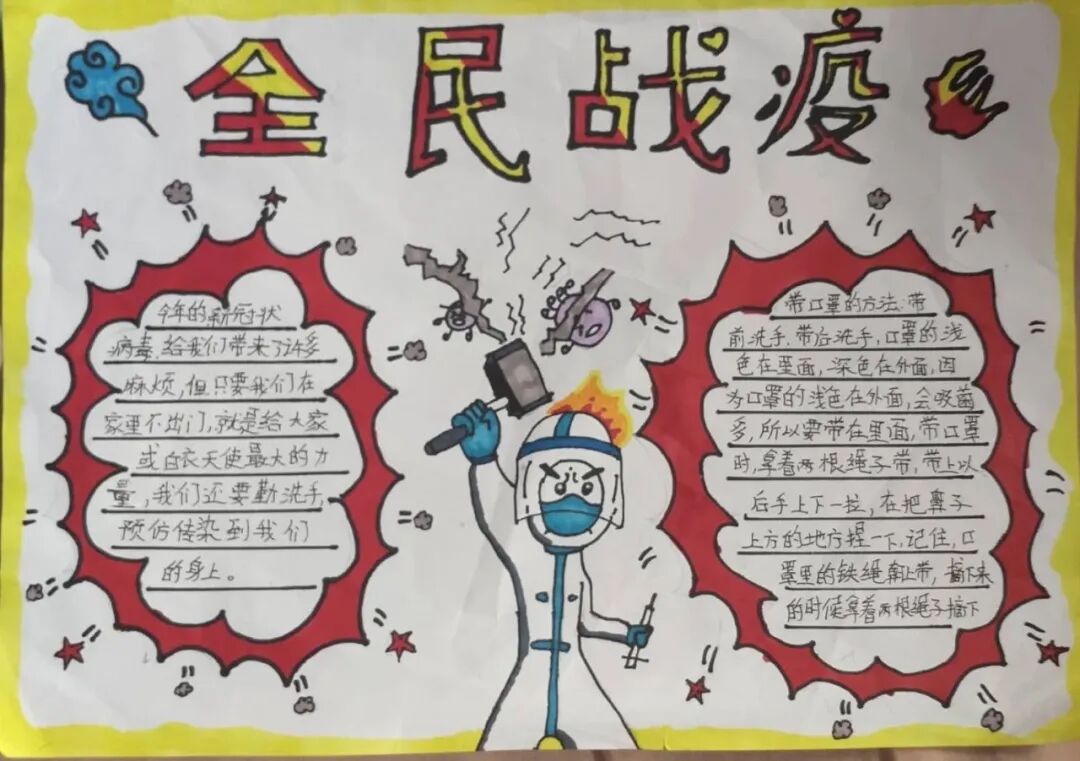 全民战疫
今年的新冠状
病毒,给我们带来了许多
麻烦,但只要我们在
家里不出门,就是给大家
或白衣天使最大的力
量,我们还要勤洗手,
预仿传染到我们
的身上。
带口罩的方法:带
前洗手,带后洗手,口罩的浅
色在里面,深色在外面,因
为口罩的浅色在外面,会吸菌
多,所以要带在里面,带口罩
时,拿着两根绳子带,带上以
后手上下一拉,在把鼻子
上方的地方捏一下,记住,口
罩里的铁绳朝上带,摘下来
的时候拿着两根绳子摘下